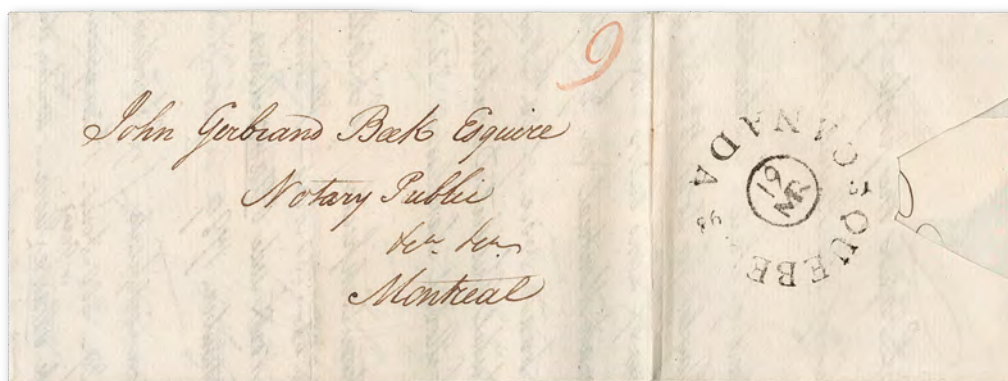 9
John Gerbrand Beek Esquire
Notary Public
&c. &c.
Montreal
QUEBEC CANADA
19
MR